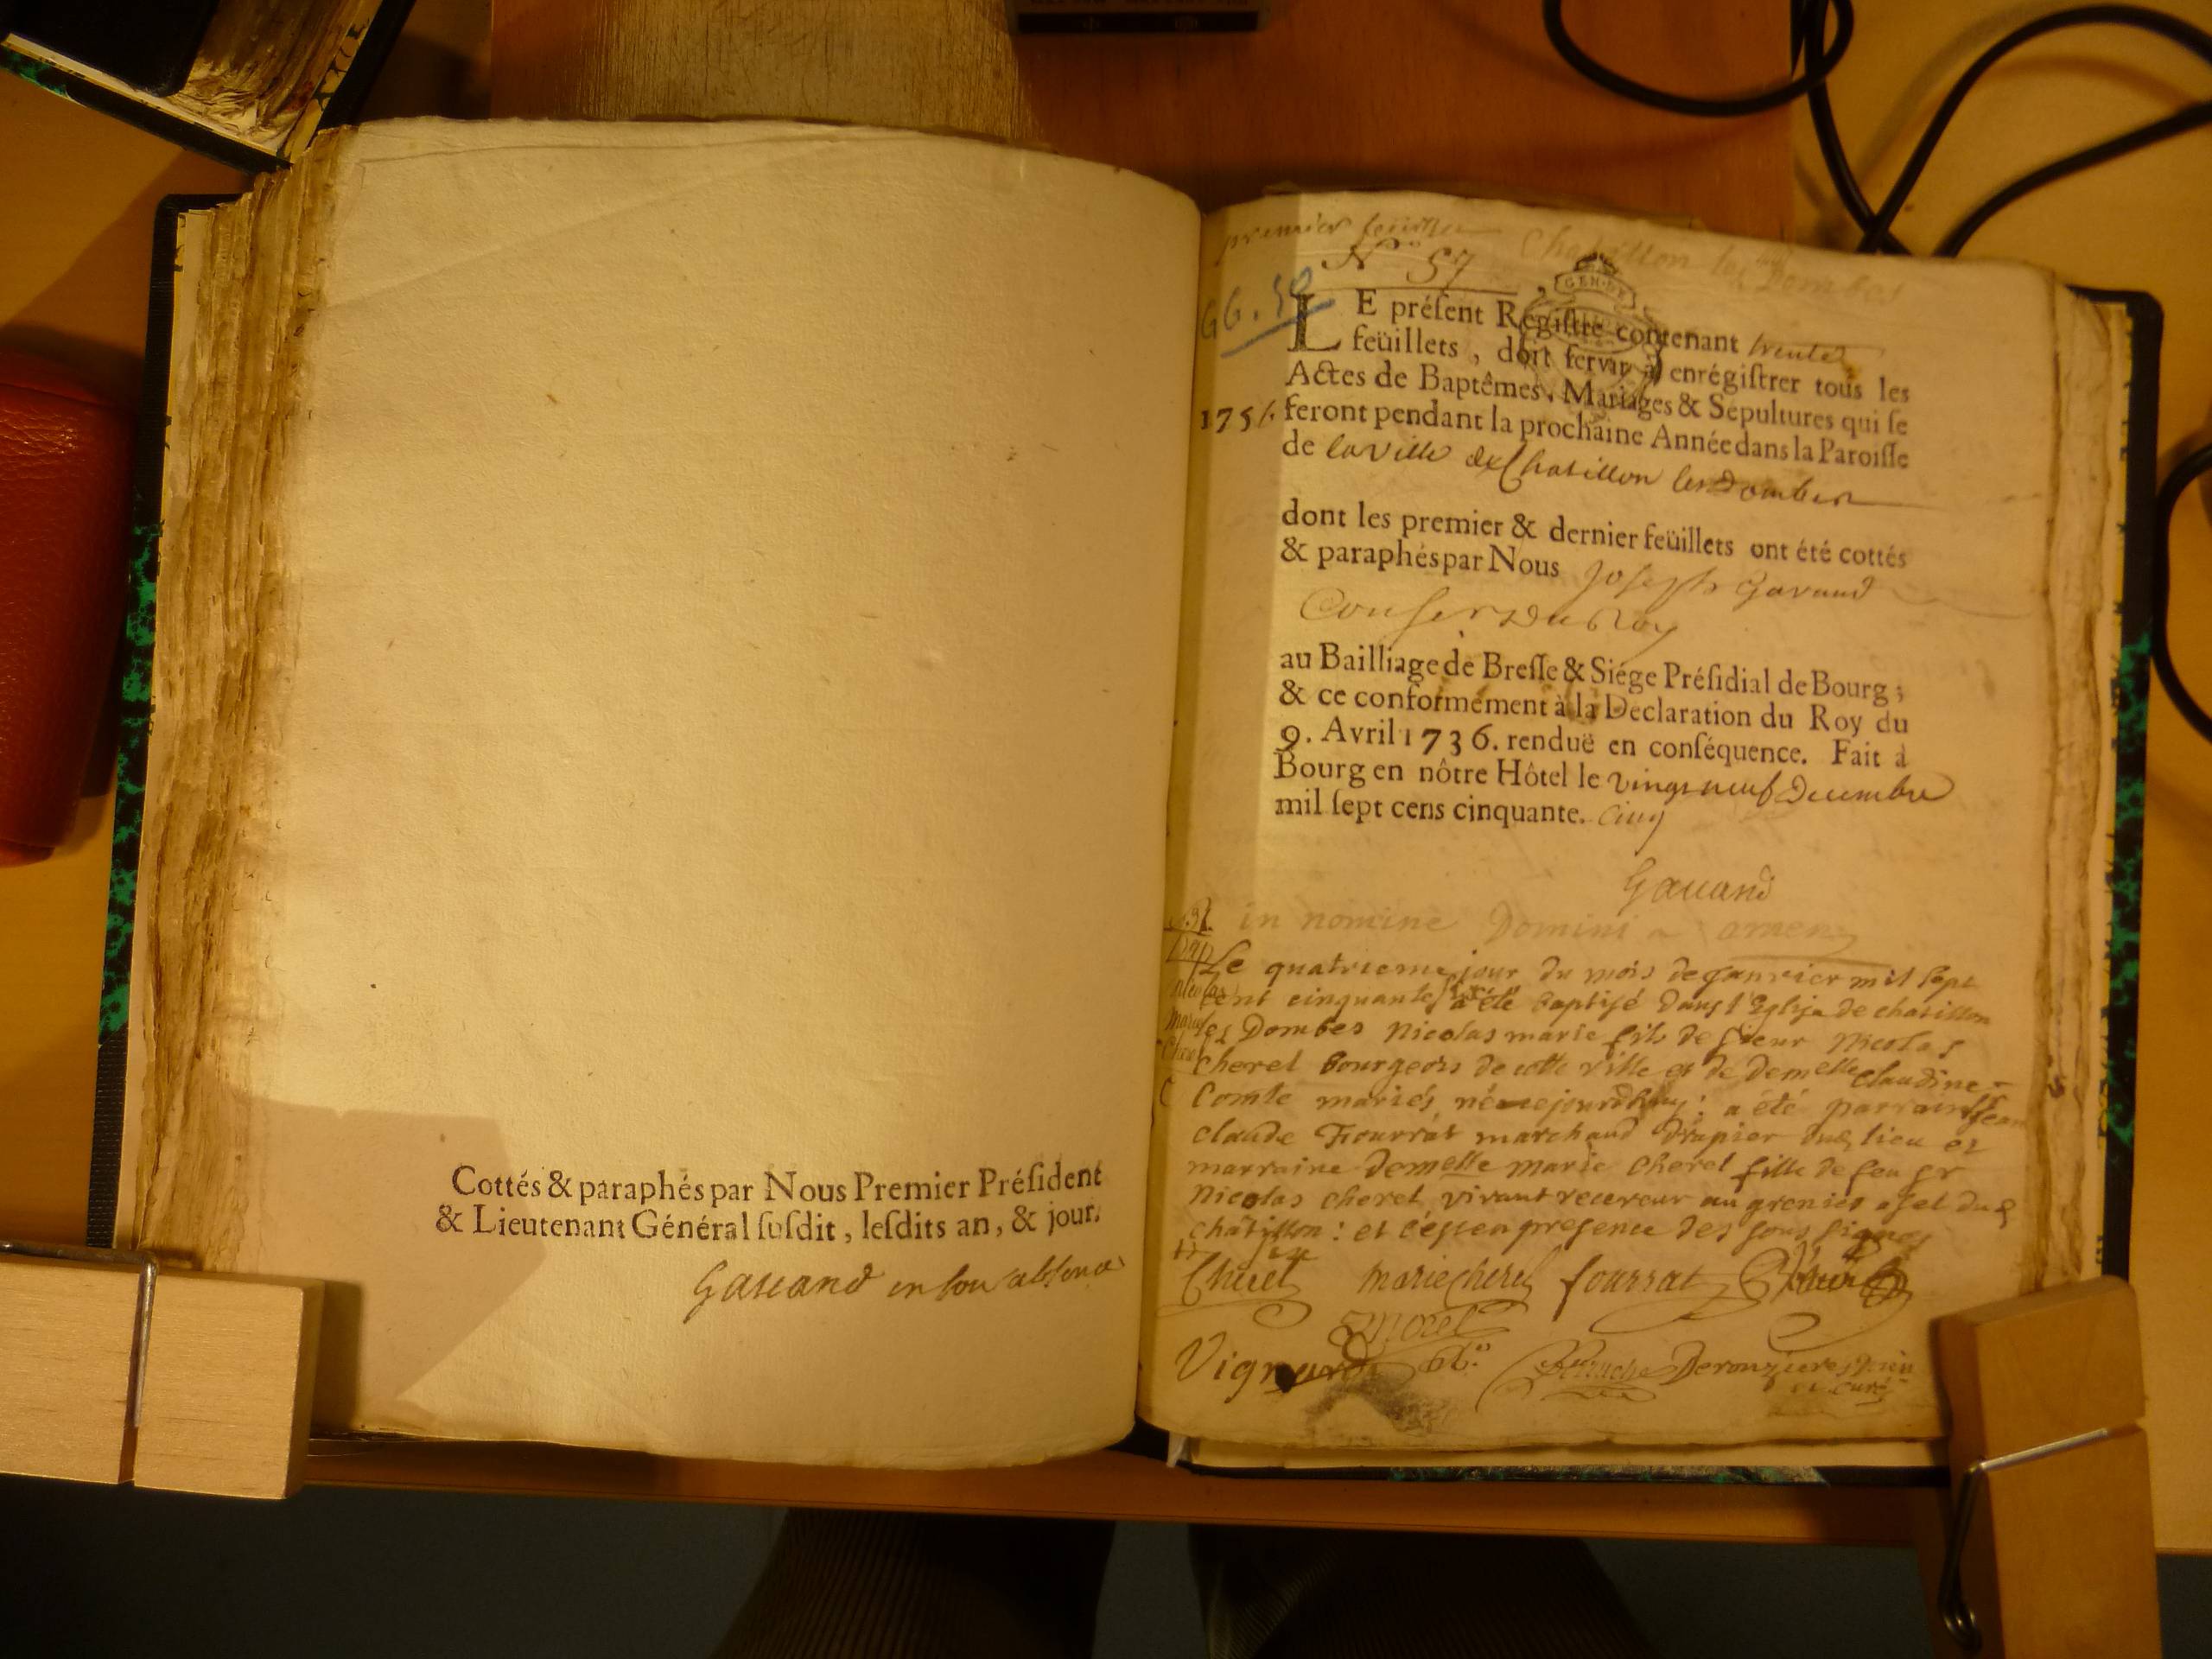 Cottés & paraphés par Nous Premier Préſident
& Lieutenant Général ſuſdit, leſdits an, & jour.
Gauand en ſon abſence
premier feuillet
Chatillon les Dombes
N° 57
GG. 50
LE préſent Régiſtre contenant trente
feüillets, doit ſervir à enrégiſtrer tous les
Actes de Baptêmes, Mariages & Sépultures qui ſe
1756. feront pendant la prochaine Année dans la Paroiſſe
de la Ville de Chatillon les Dombes
dont les premier & dernier feüillets ont été cottés
& paraphés par Nous Joseph Gavaud
Conser du Roy
au Bailliage de Breſſe & Siége Préſidial de Bourg;
& ce conformément à la Declaration du Roy du
9. Avril 1736. renduë en conſéquence. Fait à
Bourg en nôtre Hôtel le vingt neuf Decembre
mil ſept cens cinquante. cinq
Gauand
in nomine Domini amen
Le quatrieme jour du mois de janvier mil sept
cent cinquante six a été baptisé dans l'Eglise de chatillon
les Dombes Nicolas marie fils de sieur Nicolas
cherel bourgeois de cette ville et de demelle claudine
Comte mariés, né cejourdhuy: a été parrain sr jean
claude Fourrat marchand drapier dud lieu et
marraine demelle marie cherel fille de feu sr
Nicolas cherel vivant receveur au grenier a sel dud
chatillon: et c'est en presence des sous signés
Cherel marie cherel fourrat
morel
Vignard Perruche Derouzieres
curé